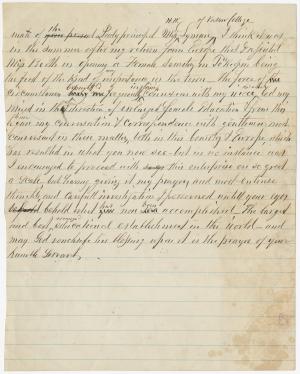 now of Vassar College
mate of the present Lady principal Miss Lyman, I think it was
in the summer after my return from Europe that I assisted
Miss Booth in opening a Female Seminary in Po'keepsie being
the first of the kind of any importance in the town – the force of
circumstances brought me frequently in company with my niece, led my
mind in the direction of enlarged female Education & from this
I was in conversation & correspondence with gentlemen most
conversant in these matters, both in this Country & Europe which
has resulted in what you now see – but in no instance was
I encouraged to proceed with this enterprise on so great
a scale, but having given it my prayers and most intense
thought and careful investigation I persevered until your eyes
behold what has now been accomplished. The largest
and best Educational establishment in the World – and
may God vouchsafe his blessing upon it is the prayer of your
humble Servant